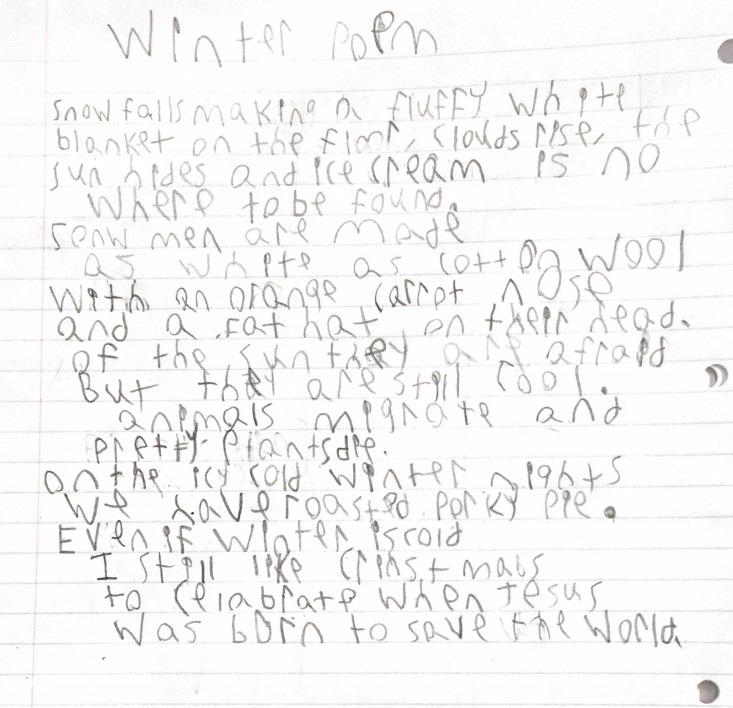 Winter poem
snow falls making a fluffy white
blanket on the floor, clouds rise, the
sun hides and ice cream is no
where to be found.
sonw men are made
as white as cotton wool
with an orange carrot nose
and a fat hat on their head.
of the sun they are afraid
But they are still cool.
animals migrate and
pretty plants die.
on the icy cold winter nights
we have roasted porky pie.
Even if winter is cold
I still like Crhistmas
to celabrate when Jesus
was born to save the world.